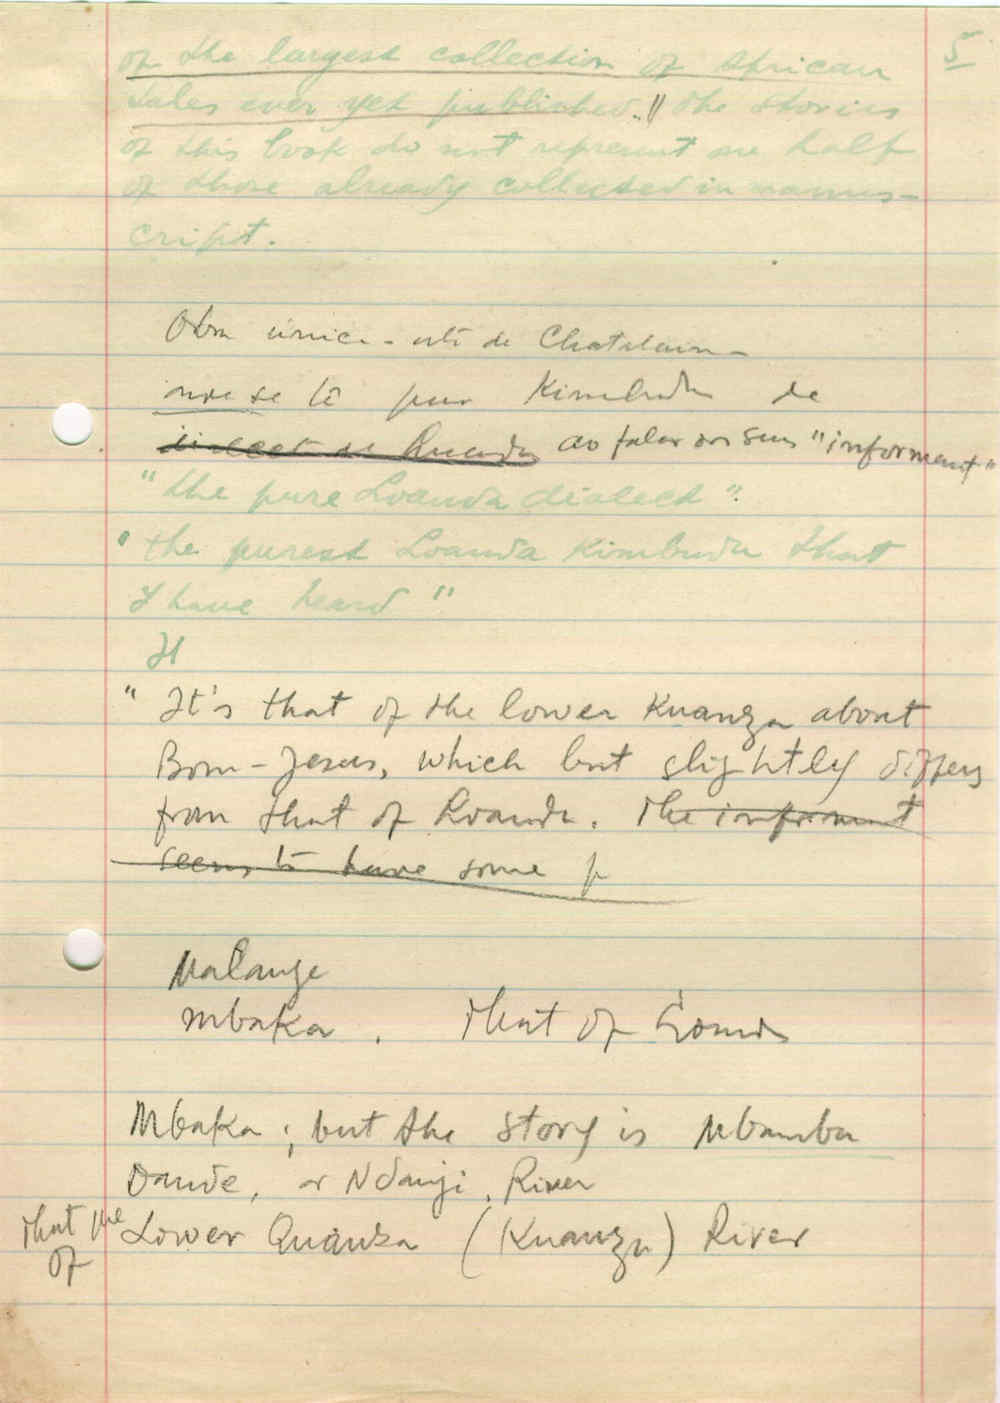 5
of the largest collection of African
tales ever yet published." The stories
of this book do not represent one half
of those already collected in manus-
cript.
Obra de Chatelain -
se lê Kimbundu de
ao falar do seu "informant"
"the pure Loanda dialect".
"the purest Loanda Kimbundu that
I have heard"
It
" It's that of the lower Kuanza about
Bom-Jesus, which but slightly differs
from that of Loanda. The informant
seems to have some p
Malange
Mbaka . that of
Mbaka ; but the story is Mbamba
Dande, or Ndanji, River
that of the Lower Quanza (Kuanza) River